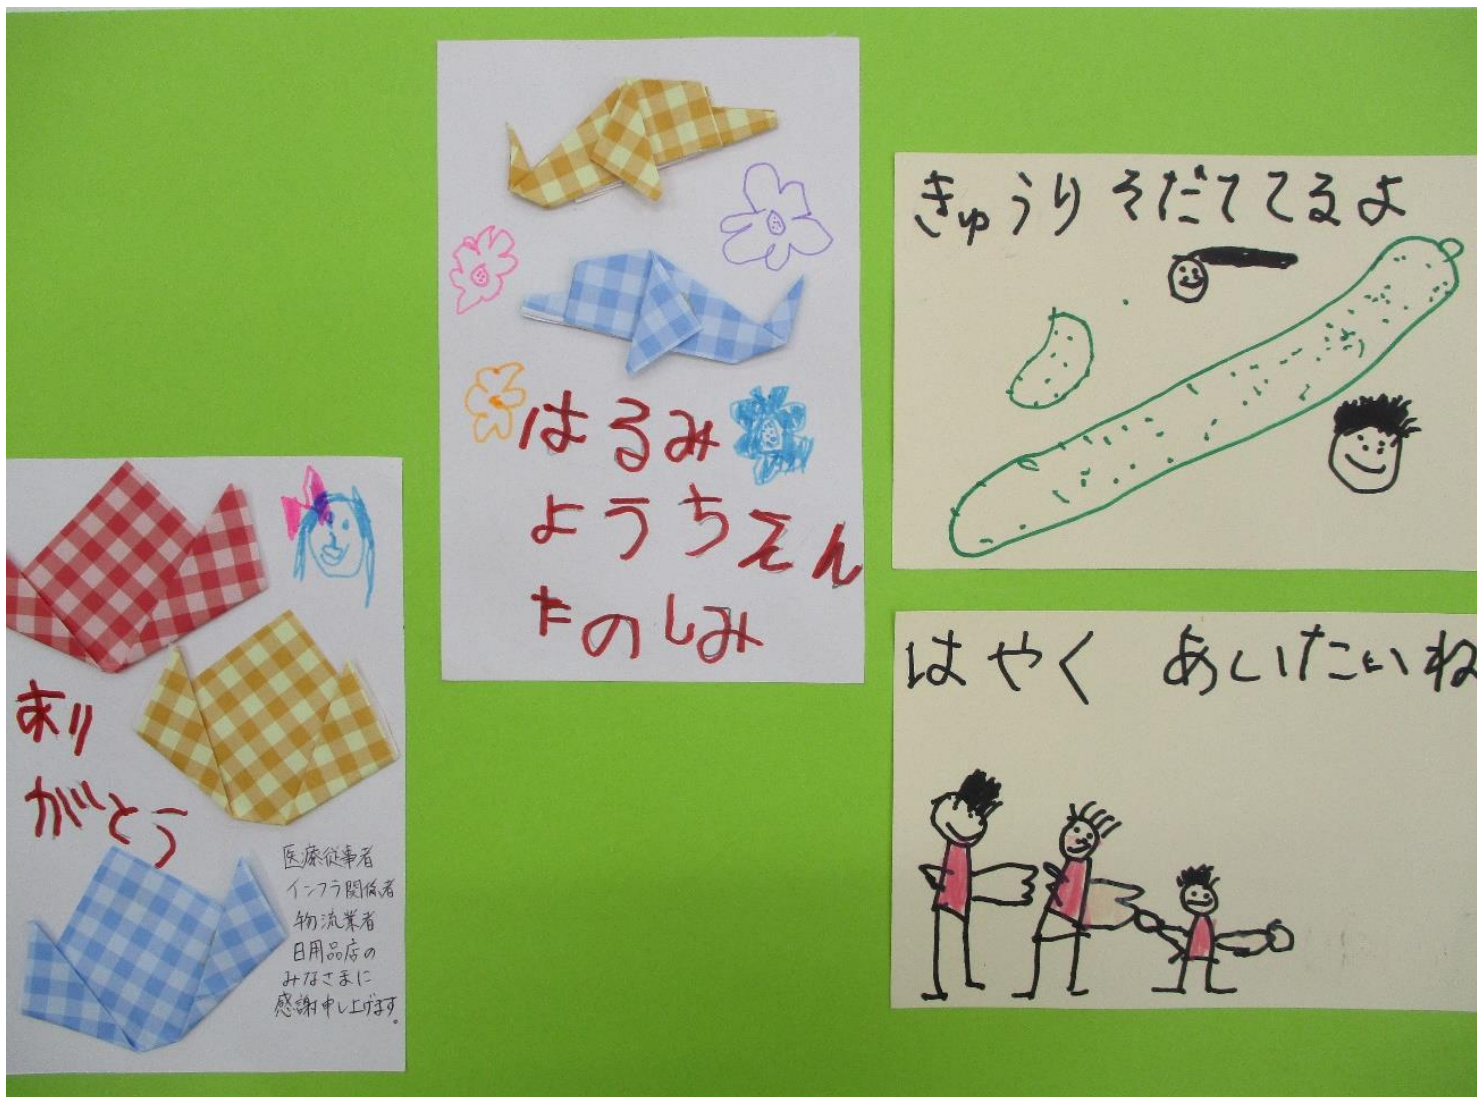 あり
がとう
医療従事者
インフラ関係者
物流業者
日用品店の
みなさまに
感謝申し上げます。
はるみ
ようちえん
たのしみ
きゅうりそだててるよ
はやく あいたいね